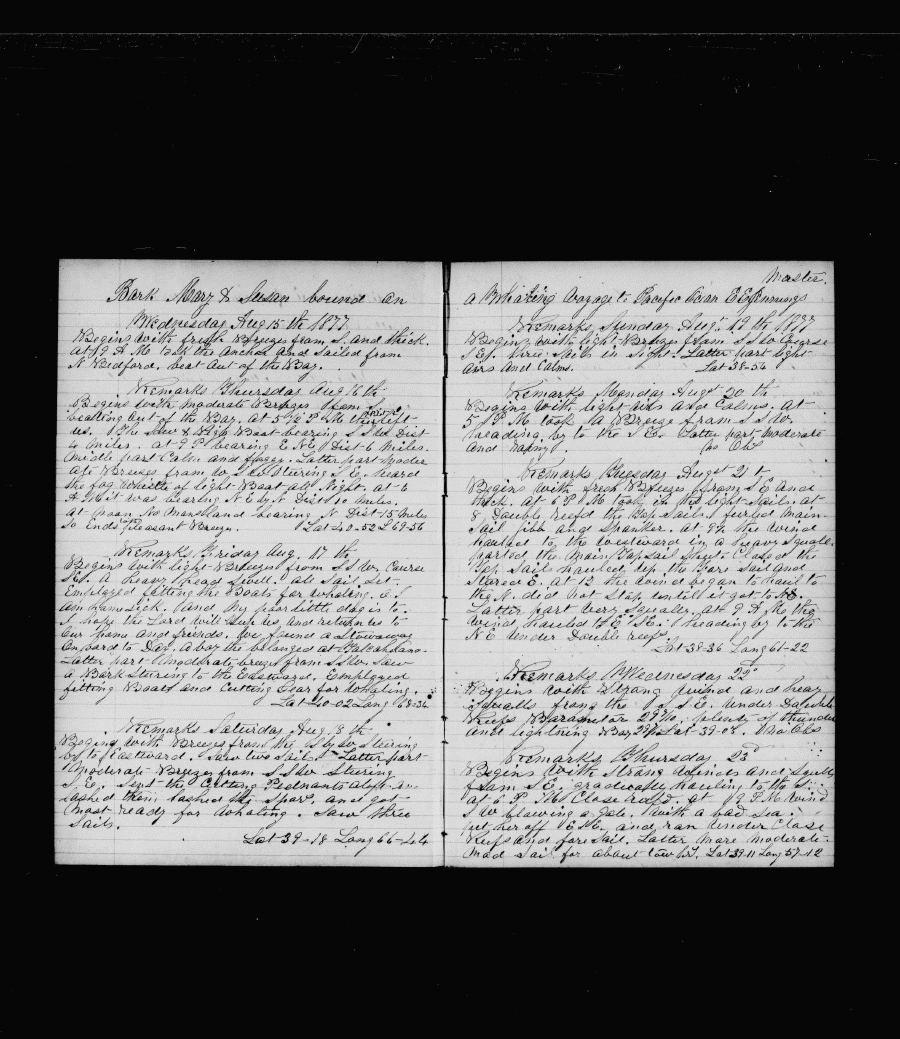 Bark Mary & Susan bound on
Wednesday Aug 15th 1877
Begins with fresh Breezes from S. and thick.
at 9 A.M took the anchor and Sailed from
N Bedford. beat out of the Bay.
Remarks Thursday Aug 16th
Begins with moderate Breezes from S
beatting out of the Bay. at 5½ P.M the Pilot left
us. the Sow & Pigs Boat bearing S S W Dist
4 miles. at 9 P bearing E N E Dist 6 miles.
middle part Calm and foggy. Latter part Moder
ate Breezes from W S W Stering S E. heard
the fog whistle of light Boat all Night. at 6
A.M it was bearing N E by N Dist 10 miles.
at noon No Mans land bearing N Dist 15 miles
So Ends pleasant Breezes. Lat 40-52 L 69-56
Remarks Friday Aug. 17th
Begins with light Breezes from S S W, Course
S E. a heavy head Swell. all Sail Set.
Employed fitting the Boats for whaling. E. J
am home Sick. and My poor little dog is to.
I hope the Lord will keep us and return us to
Our home and friends. We found a Stowaway
Onboard to Day. A boy the belonged at
Latter part Moderate breezes from S S W. Saw
a Bark Stering to the Eastward. Employed
fitting Boats and Cutting Gear for whaling.
Lat 40-02 Long 68-36
Remarks Saturday Aug. 18th
Begins with Breezes from the S by W Stering
by to Eastward. Saw two Sails. Latter part
Moderate Breezes from S S W Stering
S E. Sent the Cutting Pednants aloft an
lashed them lashed the Spars, and got
most ready for whaling. Saw three
Sails.
Lat 39-18 Long 66-44
Master.
a Whaling Voyage to Pacific Ocean E E Jennings
Remarks Sunday Aug. 19th 1877
Begins with light Breezes from S S W Course
S Ey. three Sails in Sight. Latter part light
airs and Calms. Lat 38-54
Remarks Monday Augst 20th
Begins with light airs and Calms. at
5 P.M took a Breeze from S S W.
heading by to the S E. Latter part moderate
and No Obs
Remarks Tuesday Augst 21st
Begins with fresh Breezes from S E and
thick. at 6 P.M took in the light Sails. at
8 Double reefd the Top Sails furled Main
Sail jibb and Spanker. at 9½ the wind
hauled to the westward in a heavy Squall.
parted the Main Top Sail Sheet Closed the
Top Sails hauled up the Fore Sail and
Steered E. at 12 the wind began to haul to
the N. did not Stop untill it got to
Latter part very Squaley. at 9 A Ms the
wind hauled to E S E. heading by to the
N E under Double reefs.
Lat 38-36 Long 61-22
Remarks Wednesday 22d
Begins with Strong wind and heavy
Squalls from the S S E. under Double
Reefs Barameter plenty of thunder
and lightning Lat 39-08. No Obs
Remarks Thursday 23d
Begins with Strong Winds and Squally
from S E. gradually hauling to the S.
at 6 P.M Close reefd. at 9 P M Wind
S W blowing a Gale. with a bad Sea.
put her off E N E and ran under Close
Reefs and fore Sail. Latter More moderate.
Mad Sail for about Lat 39-11 Long 57-12